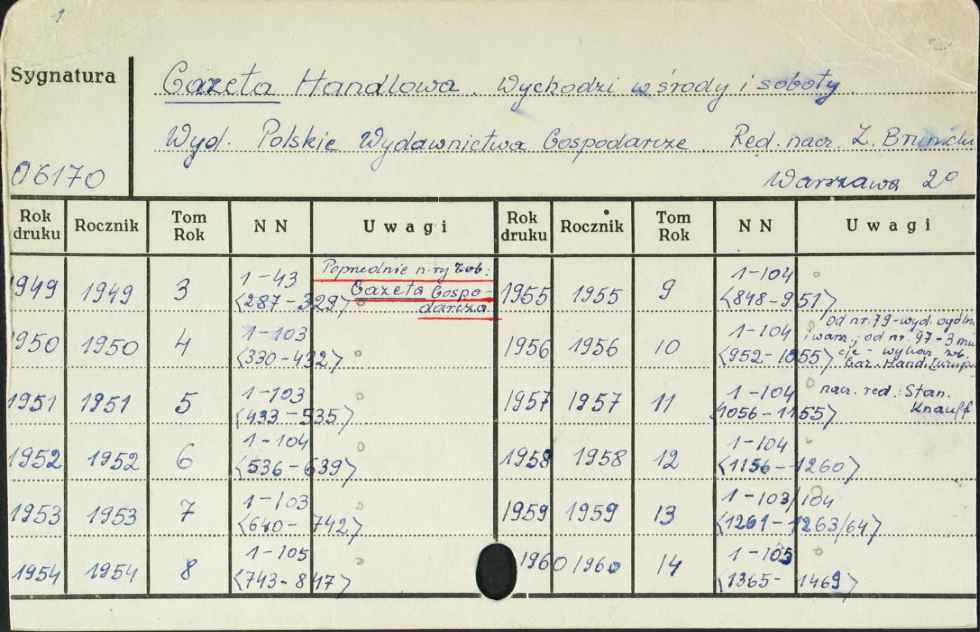 1
Sygnatura
Gazeta Handlowa. Wychodzi w środy i soboty
Wyd. Polskie Wydawnictwa Gospodarcze. Red. nacz. Z.
06170
Warszawa 20
Rok druku Rocznik Tom Rok NN Uwagi Rok druku Rocznik Tom Rok NN Uwagi
1949 1949 3 1-43 <287-329> Poprzednie n-ry zob: Gazeta Gospodarcza
1950 1950 4 1-103 <330-432>
1951 1951 5 1-103 <433-535>
1952 1952 6 1-104 <536-639>
1953 1953 7 1-103 <640-742>
1954 1954 8 1-105 <743-847>
1955 1955 9 1-104 <848-951>
1956 1956 10 1-104 <952-1055> Od nr. 79-wyd. ogóln i warsz., od nr. 97-3 mu
1957 1957 11 1-104 <1056-1155> nacz. red.: Stan. Knauff
1958 1958 12 1-104 <1156-1260>
1959 1959 13 1-103/104 <1261-1263/64>
1960 1960 14 1-105 <1365-1469>